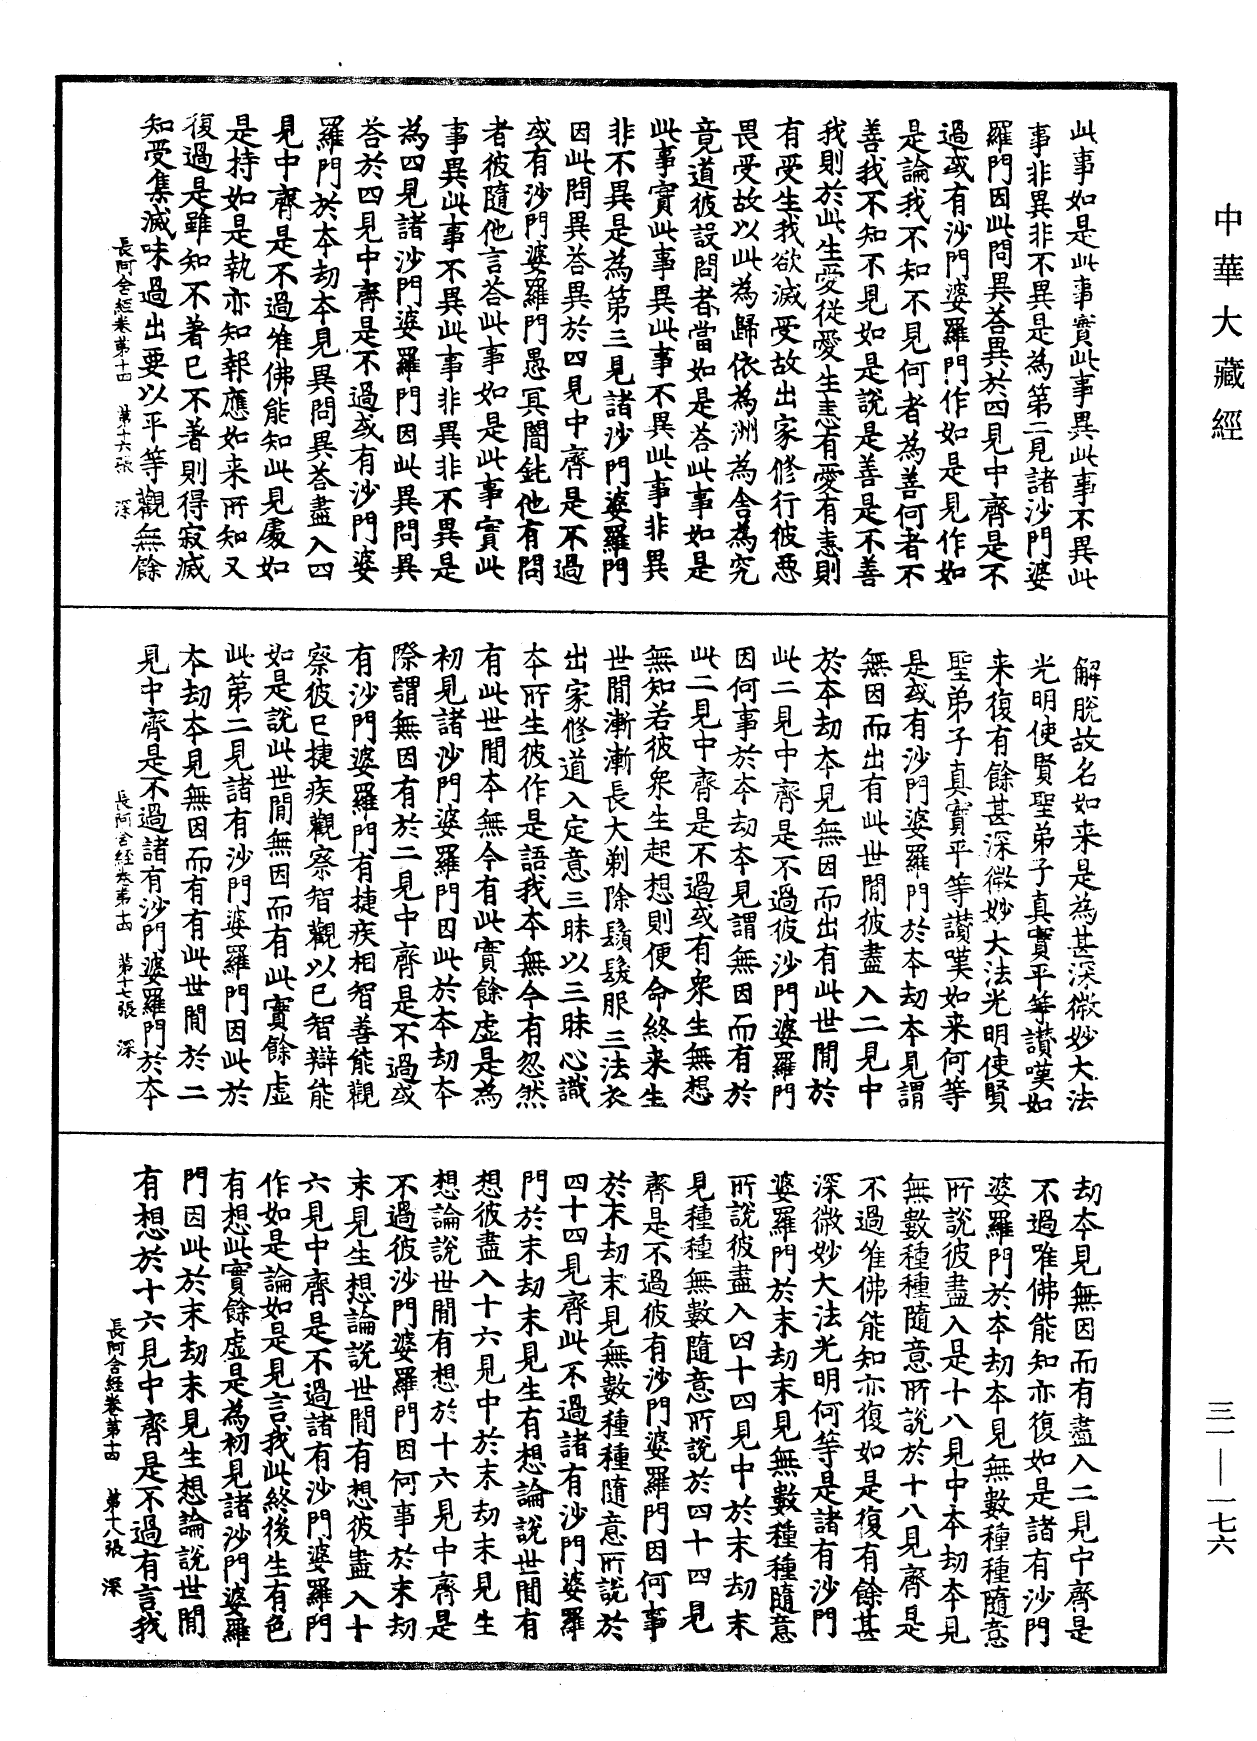 中華大藏經
三一—一七六
此事如是此事實此事異此事不異此
事非異非不異是為第二見諸沙門婆
羅門因此問異荅異於四見中齊是不
過或有沙門婆羅門作如是見作如
是論我不知不見何者為善何者不
善我不知不見如是說是善是不善
我則於此生愛從愛生恚有愛有恚則
有受生我欲滅受故出家修行彼惡
畏受故以此為歸依為洲為舍為究
竟道彼設問者當如是荅此事如是
此事實此事異此事不異此事非異
非不異是為第三見諸沙門婆羅門
因此問異荅異於四見中齊是不過
或有沙門婆羅門愚冥闇鈍他有問
者彼隨他言荅此事如是此事實此
事異此事不異此事非異非不異是
為四見諸沙門婆羅門因此異問異
荅於四見中齊是不過或有沙門婆
羅門於本劫本見異問異荅盡入四
見中齊是不過唯佛能知此見處如
是持如是執亦知報應如来所知又
復過是雖知不著已不著則得寂滅
知受集滅味過出要以平等觀無餘
長阿含經卷第十四 第十六張 深
解脫故名如来是為甚深微妙大法
光明使賢聖弟子真實平等讃嘆如
来復有餘甚深微妙大法光明使賢
聖弟子真實平等讃嘆如来何等
是或有沙門婆羅門於本劫本見謂
無因而出有此世間彼盡入二見中
於本劫本見無因而出有此世間於
此二見中齊是不過彼沙門婆羅門
因何事於本劫本見謂無因而有於
此二見中齊是不過或有衆生無想
無知若彼衆生起想則便命終来生
世間漸漸長大剃除鬚髮服三法衣
出家修道入定意三昧以三昧心識
本所生彼作是語我本無今有忽然
有此世間本無今有此實餘虛是為
初見諸沙門婆羅門因此於本劫本
際謂無因有於二見中齊是不過或
有沙門婆羅門有捷疾相智善能觀
察彼已捷疾觀察智觀以已智辯能
如是說此世間無因而有此實餘虛
此第二見諸有沙門婆羅門因此於
本劫本見無因而有有此世間於二
見中齊是不過諸有沙門婆羅門於本
長阿含經卷第十四 第十七張 深
劫本見無因而有盡入二見中齊是
不過唯佛能知亦復如是諸有沙門
婆羅門於本劫本見無數種種隨意
所說彼盡入是十八見中本劫本見
無數種種隨意所說於十八見齊是
不過唯佛能知亦復如是復有餘甚
深微妙大法光明何等是諸有沙門
婆羅門於末劫末見無數種種隨意
所說彼盡入四十四見中於末劫末
見種種無數隨意所說於四十四見
齊是不過彼有沙門婆羅門因何事
於末劫末見無數種種隨意所說於
四十四見齊此不過諸有沙門婆羅
門於末劫末見生有想論說世間有
想彼盡入十六見中於末劫末見生
想論說世間有想於十六見中齊是
不過彼沙門婆羅門因何事於末劫
末見生想論說世間有想彼盡入十
六見中齊是不過諸有沙門婆羅門
作如是論如是見言我此終後生有色
有想此實餘虛是為初見諸沙門婆羅
門因此於末劫末見生想論說世間
有想於十六見中齊是不過有言我
長阿含經卷第十四 第十八張 深